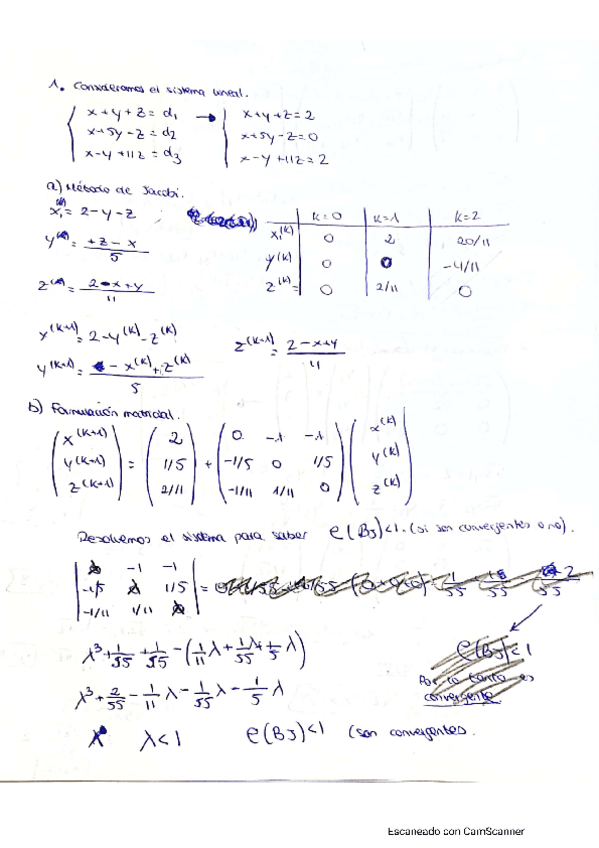 1. Consideramos el sistema lineal.
x+y+z=d1 → x+y+z=2
x+5y-z=d2 x+5y-z=0
x-y+11z=d3 x-y+11z=2
a) Método de Jacobi.
x = 2-y-z ;
y = +z-x / 5
z = 2-x+y / 11
K=0 K=1 K=2
x^(K) 0 2 20/11
y^(K) 0 0 -4/11
z^(K) = 0 2/11 0
x^(K+1) = 2-y^(K)-z^(K)
y^(K+1) = -x^(K)+z^(K) / 5
z^(K+1) = 2-x+y / 11
b) Formulación matricial.
x^(K+1) 2 0 -1 -1 x^(K)
y^(K+1) = 1/5 + -1/5 0 1/5 y^(K)
z^(K+1) 2/11 -1/11 1/11 0 z^(K)
Resolvemos el sistema para saber ρ(BJ)<1. (si son convergentes o no).
λ -1 -1
-1/5 λ 1/5 =
-1/11 1/11 λ
λ³+1/55+1/55-(1/11λ+1/55λ+1/5λ)
λ³+2/55-1/11λ-1/55λ-1/5λ
ρ(BJ)<1
Por lo tanto es
convergente.
λ<1 ρ(BJ)<1 (son convergentes.
Escaneado con CamScanner